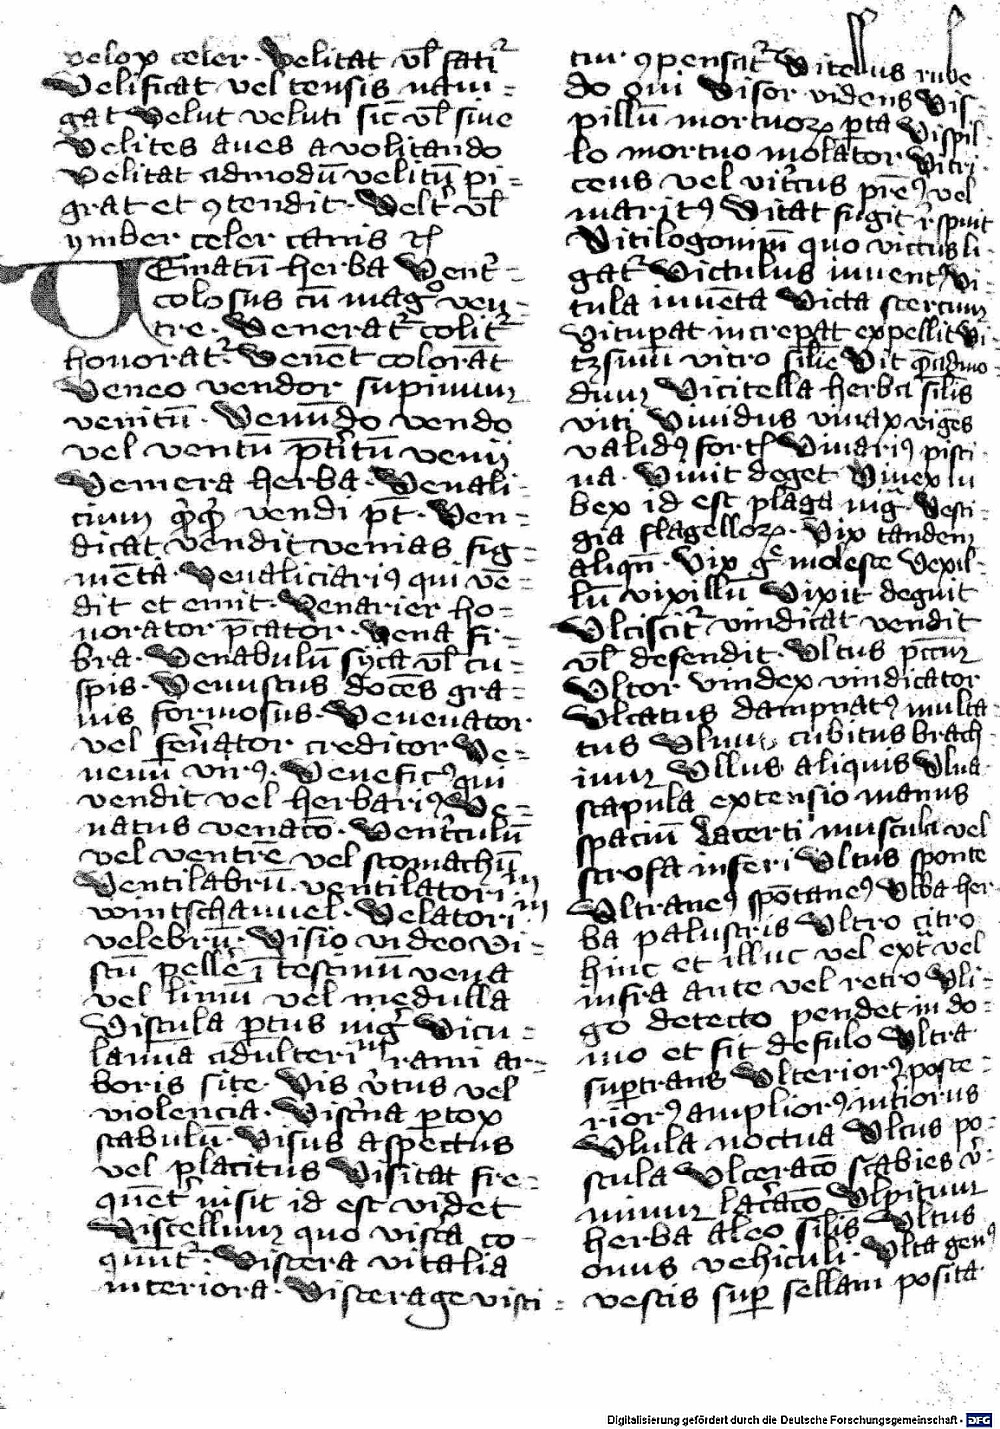 velox celer. Velitat vl̄ satr̄
Velificat vel tensis navi=
gat Velut veluti sic̄ vl̄ sive
Velites aves a volitando
Velitat admodū velitū pi=
grat et ꝯtendit. Veltr̄ vl̄
ymber celer canis
Venatū herba Ventr̄=
colosus cū magͦ ven=
tre. Veneratr̄ colitr̄
honoratr̄. Venēt colorāt
Veneo vendor supinum
venitū. Venūdo vendo
vel ventū p̄titū venij
Vemera herba. Venali=
cium vendi pt̄. Ven=
dicat vendit venias fig=
mēta. Venaliciariꝰ qui vē=
dit et emit. Venarier ho=
norator p̄cator. Vena fi=
bra. Venabulū syca vl̄ cu=
spis. Venustus docēs gra=
vis formosus. Venenator
vel fen̄ator creditor Ve=
nenū virꝰ. Veneficꝰ qui
vendit vel herbariꝰ Ve=
natus venatō. Ventr̄culū
vel ventrē vel stomachū
Ventilabrū. ventilatoriū
wintschauuel. Velatoriū
velebrū. Visio video vi=
stū pellē ī testinū vena
vel linū vel medulla
Viscula ptus nigr̄ Vicu=
lamīa adulterinī rami ar=
boris site. Vis v̄tus vel
violencia. Viscn̄a ptox
stabulū. Visus aspectus
vel placitus Visitat fre=
quēt nisit id est videt
Viscellium quo visca co=
quūtr̄. Viscera vitalia
interiora. Viscerage visci=
tur ꝯpenscitr̄ Vitellus rube
do oui Visor videns Vis=
pillū mortuoꝝ pta Vispil=
lo mortuo molator Vitri=
ceus vel vitr̄cus prēꝰ vel
maritꝰ Vitat fugit r̄spuit
Vitilogonium quo victus li=
gatr̄ Victulus iuuentꝰ Vi=
tula iuuēta Victa stercum
Vitupat increpat expellit Vi=
tꝫ simū vitro sil̄ie Vit
dum Vicitella herba silis
viti Vividus vivax vigēs
validꝰ fort Vivariꝰ pisci=
na. Vivit deget Vivex lu
bex id est plaga niḡ. Vesti=
gia flagelloꝝ. Vix tandem
aliqn̄. Vix moleste Vexil=
lū vixillū Vixit deguit
Ulciscitr̄ vindicat vendit
vl̄ defendit. Ultus pctm̄
Ultor vindex vindicator
Ulcatus dampnatꝰ multa=
tus Ulnu cubitus brach=
ium Ullus aliquis Ulna
scapula extensio manus
spaciū lacerti muscula vel
scrofa inferi Ultus sponte
Ultraneꝰ spōtaneꝰ Ulba her=
ba palustris Ultro citro
hinc et illuc vel ext̄ vel
infra ante vel retro Uli=
go detecto pendet in do=
mo et fit de fulo Ultra
suptrans Ulteriorꝰ poste=
riorꝰ ampliorꝰ int̄iorus
Ulula noctua Ulcus po=
scula Ulceratō scabies v̄=
minum lac̄atō Ulpitum
herba aleo silis Ultus
onus vehiculi. Ulta genꝰ
vestis sup sellam posita
Digitalisierung gefördert durch die Deutsche Forschungsgemeinschaft - DFG